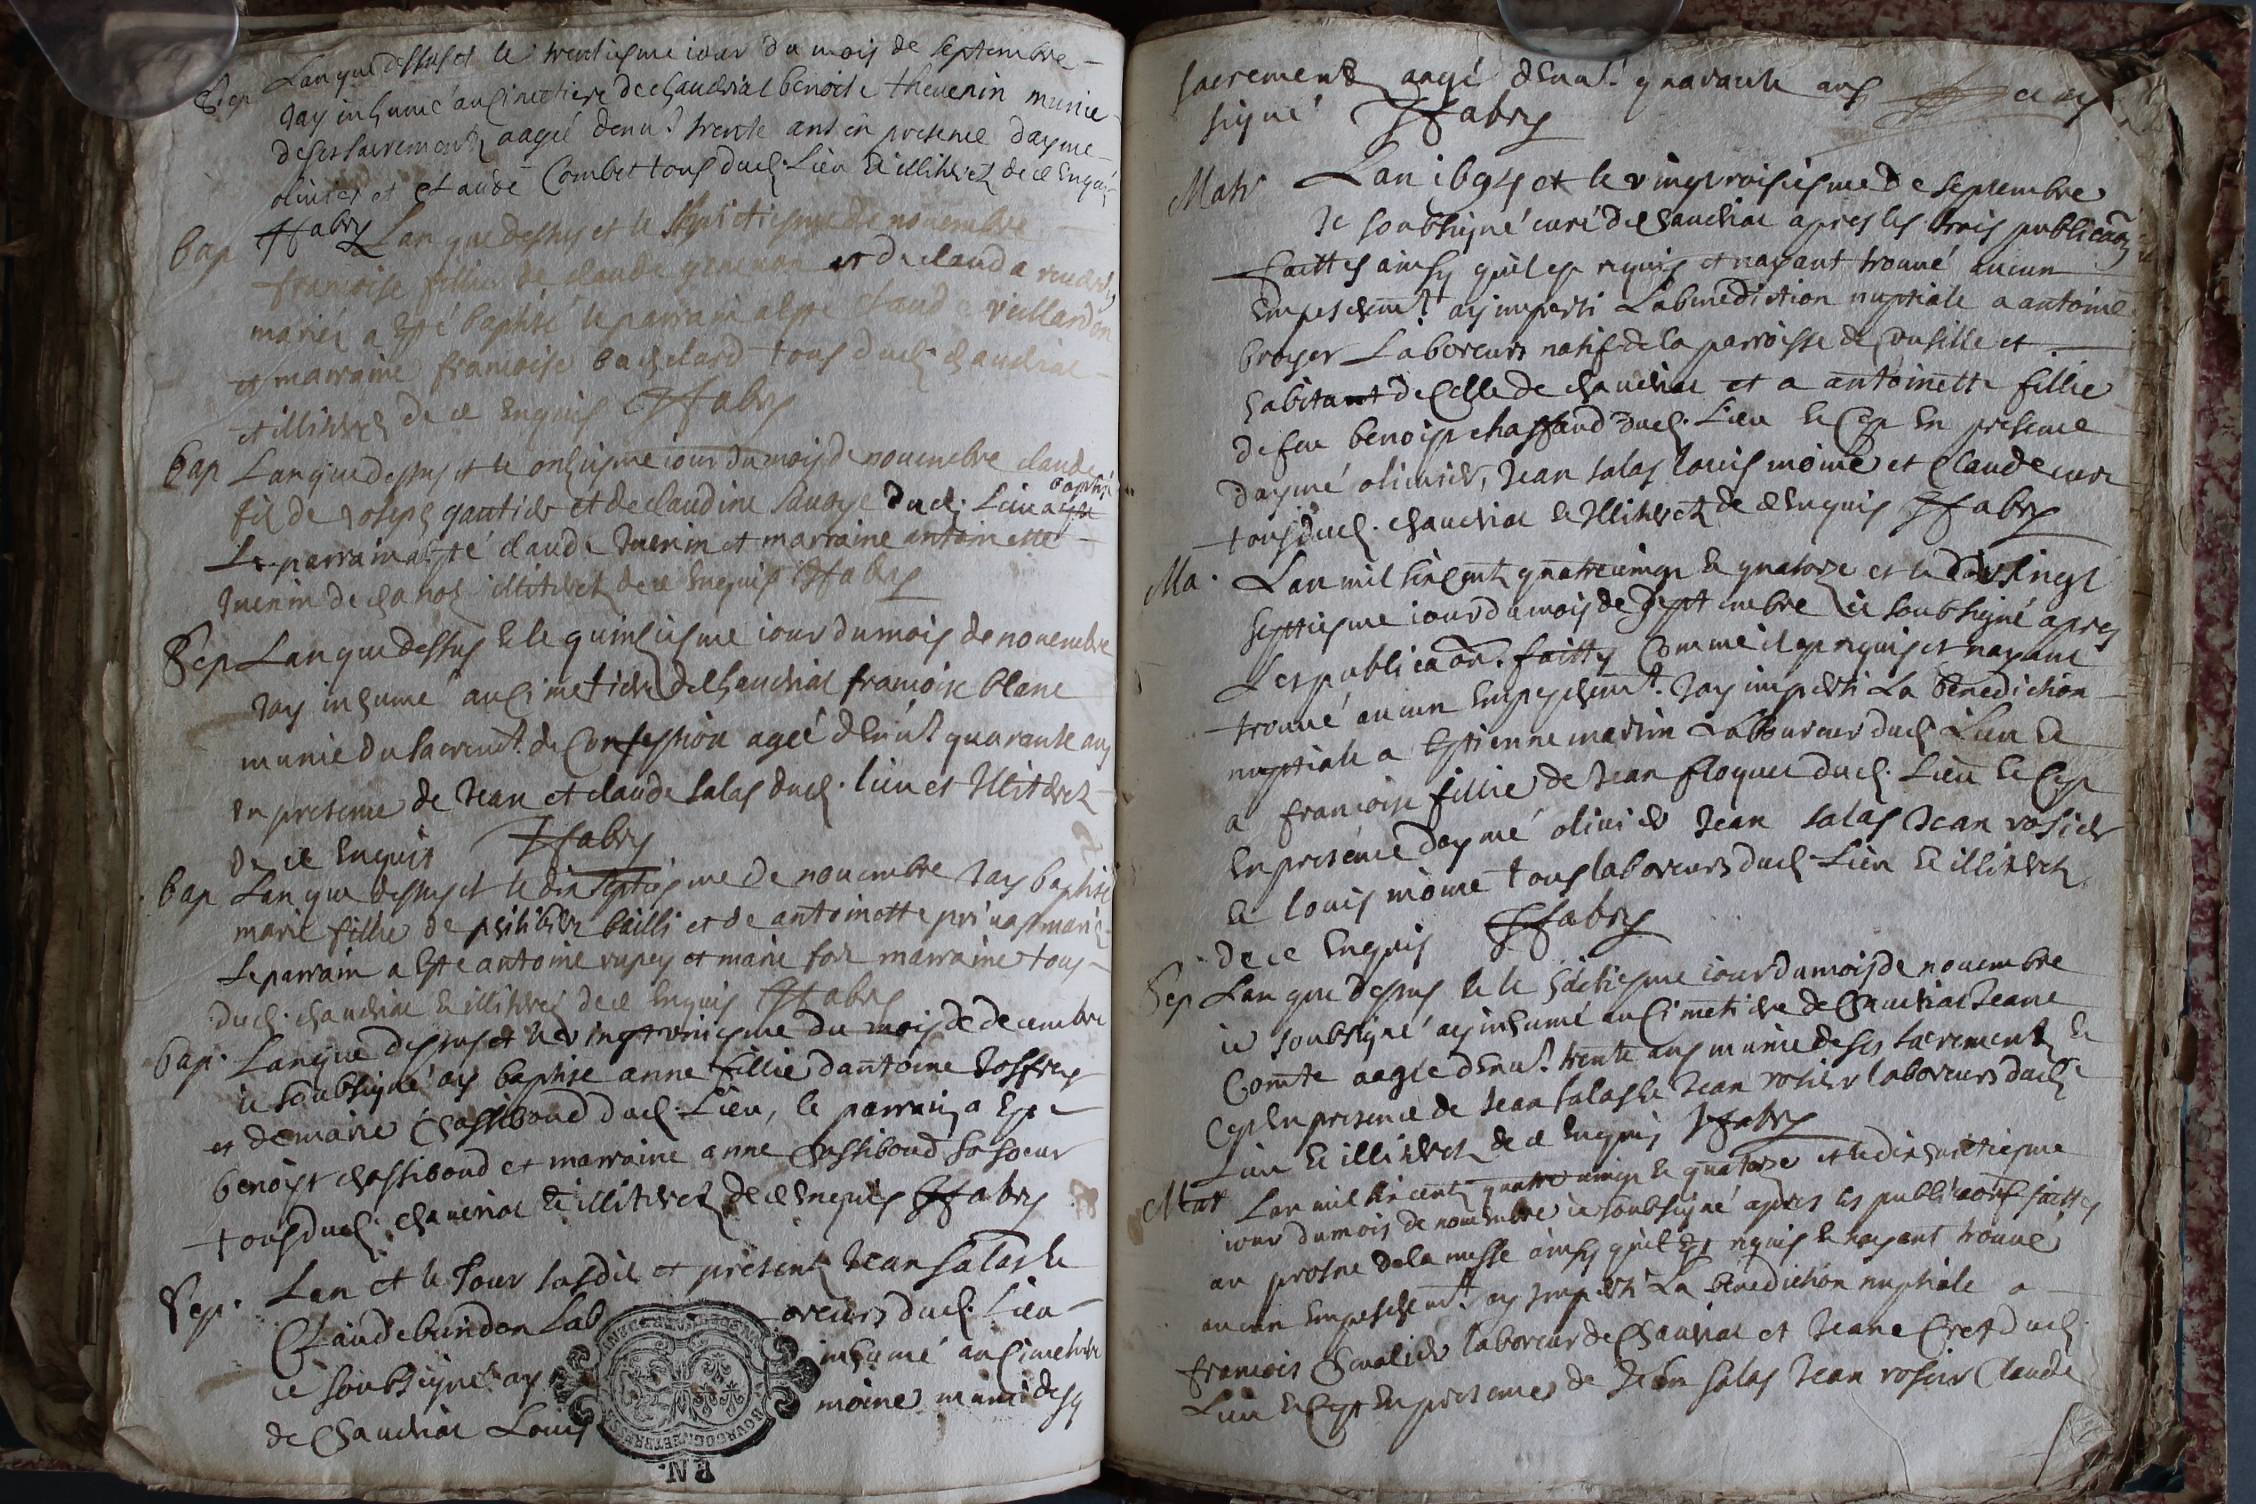 Sep Lan que dessus et le trentiesme iour du mois de septembre
Jay inhumé au Cimetiere de chaudriat benoite thevenin munie
de ses sacrements aagée denut trente ans en presence daymé
olivier et Claude Combet tous dud. Lieu & illiteréz de ce Enquis
JFabry
Bap Lan que dessus et le huictiesme de novembre
francoise fillie de claude et de clauda
mariés a esté baptisé le parrain a este Claude vuillardon
et marraine francoise bachelard tous dud. chaudriat
et illiteréz de ce Enquis JFabry
bap Lan que dessus et le onziesme iour du mois de novembre claude
fil de Joseph gautier et de claudine savoye dud. Lieu a este baptisé
Le parrain a esté claude Juenin et marraine antoinette
Juenin illiteréz de ce Enquis JFabry
Sep Lan que dessus & le quinziesme iour du mois de novembre
Jay inhumé au Cimetiere de Chaudriat francoise blanc
munie du sacremt. de Confession agée denut. quarante ans
en presence de Jean et claude salas dud. lieu et Illiteréz
de ce Enquis JFabry
bap Lan que dessus et le dix septiesme de novembre Jay baptisé
marie fillie de philiber bailli et de antoinette privas mariés
Le parrain a Este antoine rupey et marie marraine tous
dud. chaudriat & illiteréz de ce Enquis JFabry
bap. Lan que dessus et le vingt uniesme du mois de decembre
ie soubsigné ay baptise anne fillie dantoine Joffrey
et de marie Chassiboud dud. Lieu, le parrain a Este
benoist chassiboud et marraine anne Chassiboud sa soeur
tous dud. chaudriat & illiteréz de ce Enquis JFabry
Sep. Lan et le Jour susdit et presents Jean salas &
Claude bundon Laboreurs dud. Lieu
ie soubsigne ay inhumé au Cimetiere
de Chaudriat Louis moine muni de ses
BOURGOGNE ET BRESSE
sacrements aagé denut. quarante ans
signé JFabry
Matr Lan 1694 et le vingtroisiesme de septembre
Je soubsigné curé de Chaudriat apres les trois publicaons
faittes ainsy quil est requis et nayant trouvé aucun
Empeschemt. ay imperti La benediction nuptiale a antoine
broyer Laboreurs natif de la parroisse de Cousille et
habitant de Celle de chaudriat et a antoinette fillie
de feu benoist chaffaud dud. Lieu & Cest En presence
daymé olivier, Jean salas louis moine et Claude
tous dud. chaudriat & Illiteréz de ce Enquis JFabry
Ma. Lan mil six Cents quatrevingt & quatorze et le vingt
septiesme iour du mois de septembre ie soubsigné apres
Les publicaon. faittes Comme il est requis et nayant
trouvé aucun Empeschemt. Jay imperti La benediction
nuptiale a Estienne martin Laboureur dud. Lieu &
a francoise fillie de Jean floquet dud. Lieu & Cest
En presence daymé olivier Jean salas Jean rosier
& louis moine tous laboreurs dud. Lieu & illiteréz
de ce Enquis JFabry
Sep Lan que dessus & le huictiesme iour du mois de novembre
ie soubsigné ay inhumé au Cimetiere de Chaudriat Jeane
Comte aagée denut. trente ans munie de ses sacrements &
Cest En presence de Jean salas & Jean rosier laboreurs dud.
Lieu & illiteréz de ce Enquis JFabry
Mat Lan mil six cents quatre vingt & quatorze et le dix huictiesme
iour du mois de novembre ie soubsigné apres les publicaons faittes
au prosne de la messe ainsy quil Est requis & nayant trouvé
aucun Empeschemt. ay Imperti La benediction nuptiale a
francois Chevalier laboreur de Chaudriat et Jeane Cret dud.
Lieu & Cest En presence de Jean salas Jean rosier Claude